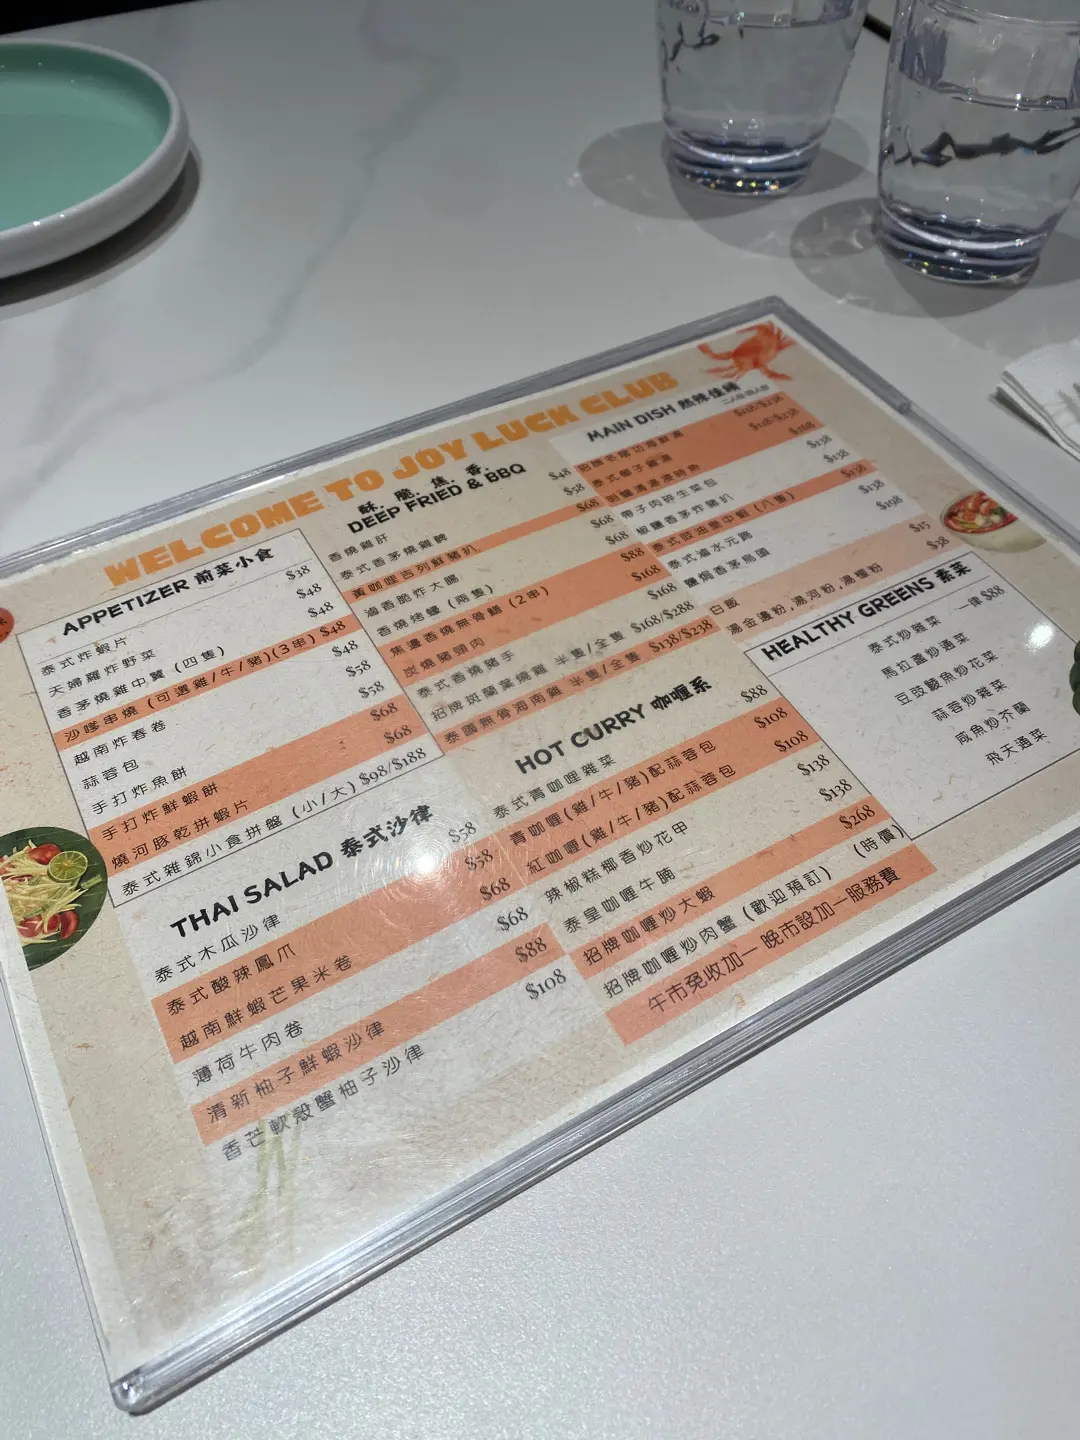 WELCOME TO JOY LUCK CLUB
APPETIZER 前菜小食
泰式炸蝦片 $38
天婦羅炸野菜 $48
香茅燒雞中翼 (四隻) $48
沙嗲串燒 (可選雞/牛/豬)(3串) $48
越南炸春卷 $48
蒜蓉包 $58
手打炸魚餅 $58
手打炸鮮蝦餅 $68
燒河豚乾拼蝦片 $68
泰式雜錦小食拼盤 (小/大) $98/$188
THAI SALAD 泰式沙律
泰式木瓜沙律 $58
泰式酸辣鳳爪 $58
越南鮮蝦芒果米卷 $68
薄荷牛肉卷 $68
清新柚子鮮蝦沙律 $88
香芒軟殼蟹柚子沙律 $108
酥．脆．焦．香．
DEEP FRIED & BBQ
香燒雞肝 $48
泰式香茅燒雞髀 $58
黃咖喱吉列鮮豬扒 $68
滷香脆炸大腸 $68
香燒烤鱔 (兩隻) $68
焦邊香燒無骨鰭 (2串) $88
炭燒豬頸肉 $168
泰式香燒豬手 $168
招牌斑蘭葉燒雞 半隻/全隻 $168/$288
泰國無骨海南雞 半隻/全隻 $138/$238
HOT CURRY 咖喱系
泰式青咖喱雜菜 $88
青咖喱(雞/牛/豬)配蒜蓉包 $108
紅咖喱(雞/牛/豬)配蒜蓉包 $108
辣椒糕椰香炒花甲 $138
泰皇咖喱牛腩 $138
招牌咖喱炒大蝦 $268
招牌咖喱炒肉蟹 (歡迎預訂) (時價)
午市免收加一 晚市設加一服務費
MAIN DISH 惹辣佳餚
帶子肉碎生菜包 $138
椒鹽香茅炸豬扒 $138
泰式豉油皇中蝦 (八隻) $138
泰式滷水元蹄 $158
鹽焗香茅烏頭 $198
白飯 $15
湯金邊粉,湯河粉,湯檬粉 $38
HEALTHY GREENS 素菜
一律 $88
泰式炒雜菜
馬拉盞炒通菜
豆豉鯪魚炒花菜
蒜蓉炒雜菜
咸魚炒芥蘭
飛天通菜